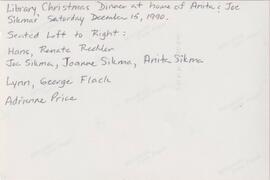 Library, Christmas Dinner at home of Anita & Joe
Sikma Saturday December 15, 1990.
Seated Left to Right:
Hans, Renate Rechler
Joe Sikma, Joanne Sikma, Anita Sikma
Lynn, George Flack
Adrienne Price